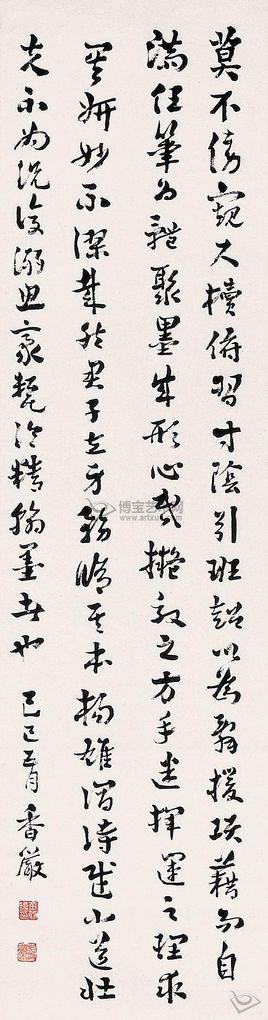 莫不傍窺尺牘俯習寸陰引班超以為辭援項藉而自
滿任筆為體聚墨成形心昏擬效之方手迷揮運之理求
其妍妙不謬哉然君子立身務脩其本揚雄謂詩賦小道壯
夫不為況復溺思豪氂淪精翰墨者也 己巳五月 香嚴
博宝艺术网